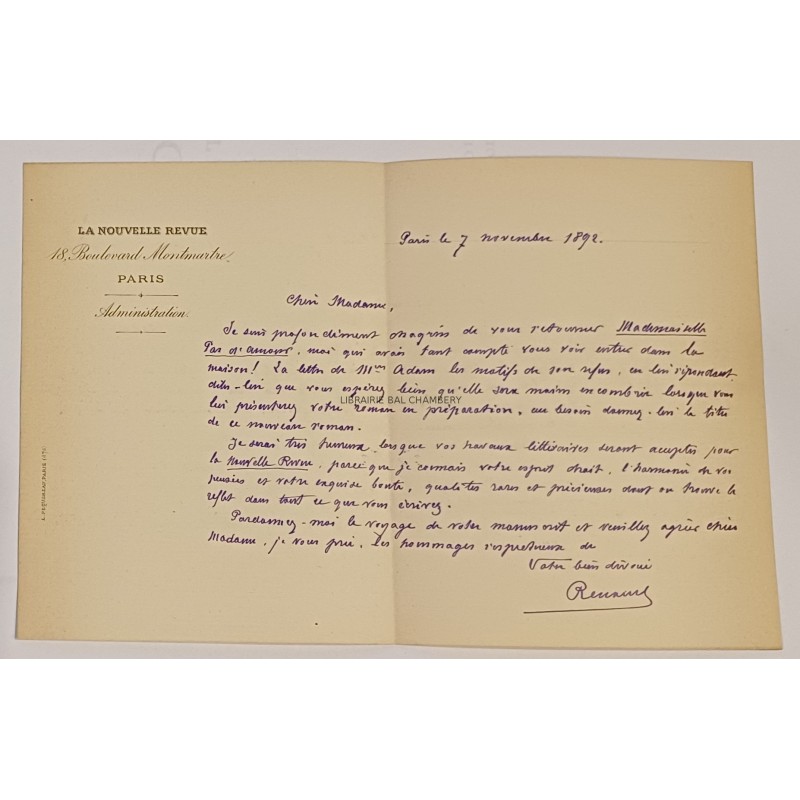 LA NOUVELLE REVUE
18, Boulevard Montmartre,
PARIS
Administration
Paris le 7 novembre 1892.
Chère Madame,
Je suis profondément chagrin de vous retourner Mademoiselle
Pas d'amour, moi qui avais tant compté vous voir entrer dans la
maison! La lettre de Mme Adam les motifs de son refus, en lui répondant
dites-lui que vous espérez bien qu'elle sera moins encombrée lorsque vous
lui présenterez votre roman en préparation, au besoin donnez-lui le titre
de ce nouveau roman.
LIBRAIRIE BAL CHAMBERY
Je serai très heureux lorsque vos travaux littéraires seront acceptés pour
la Nouvelle Revue, parce que je connais votre esprit droit, l'harmonie de vos
pensées et votre exquise bonté, qualités rares et précieuses dont on trouve le
reflet dans tout ce que vous écrivez.
Pardonnez-moi le voyage de votre manuscrit et veuillez agréer chère
Madame, je vous prie, les hommages respectueux de
Votre bien dévoué
Renaud